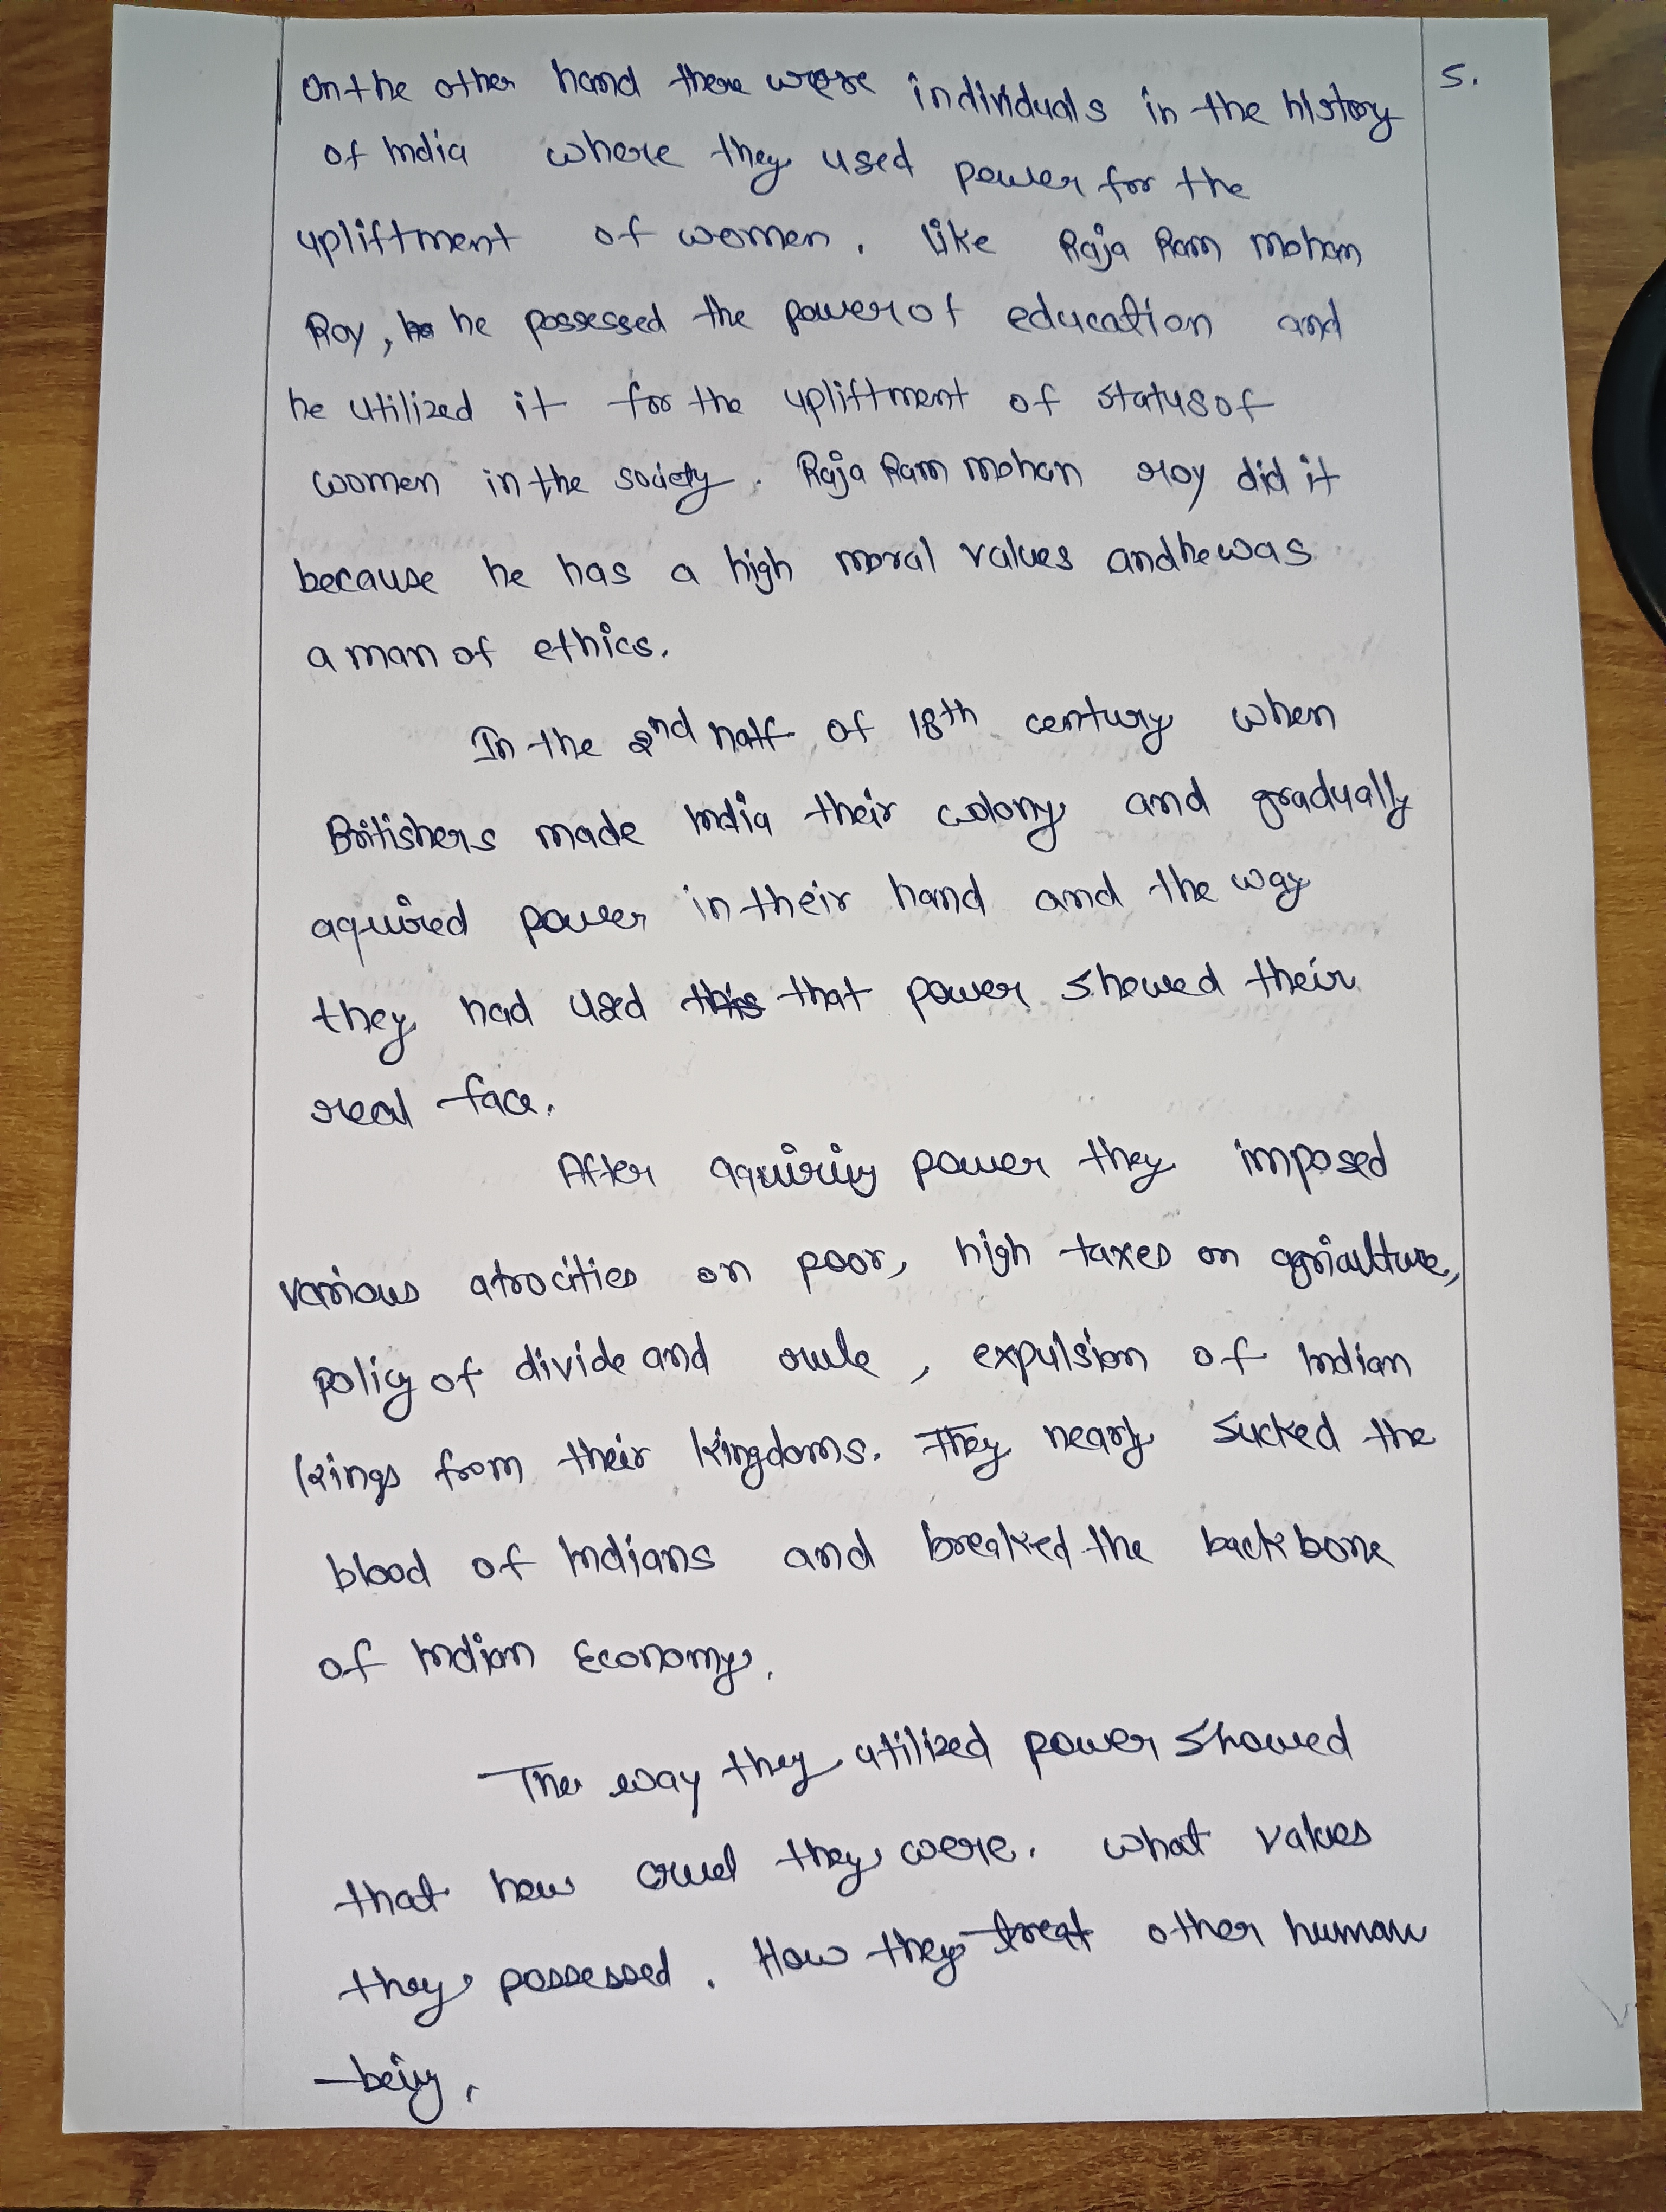 5.
On the other hand there were individuals in the history
of India where they used power for the
upliftment of women. like Raja Ram Mohan
Roy, he possessed the power of education and
he utilized it for the upliftment of status of
women in the society. Raja Ram mohan roy did it
because he has a high moral values and he was
a man of ethics.
In the 2nd half of 18th century when
Britishers made India their colony and gradually
aquired power in their hand and the way
they had used this that power showed their
real face.
After aquiring power they imposed
various atrocities on poor, high taxes on agriculture,
policy of divide and rule, expulsion of Indian
kings from their kingdoms. They nearly sucked the
blood of Indians and breaked the backbone
of Indian Economy.
The way they utilized power showed
that how cruel they were. what values
they possessed. How they treat other human
being.